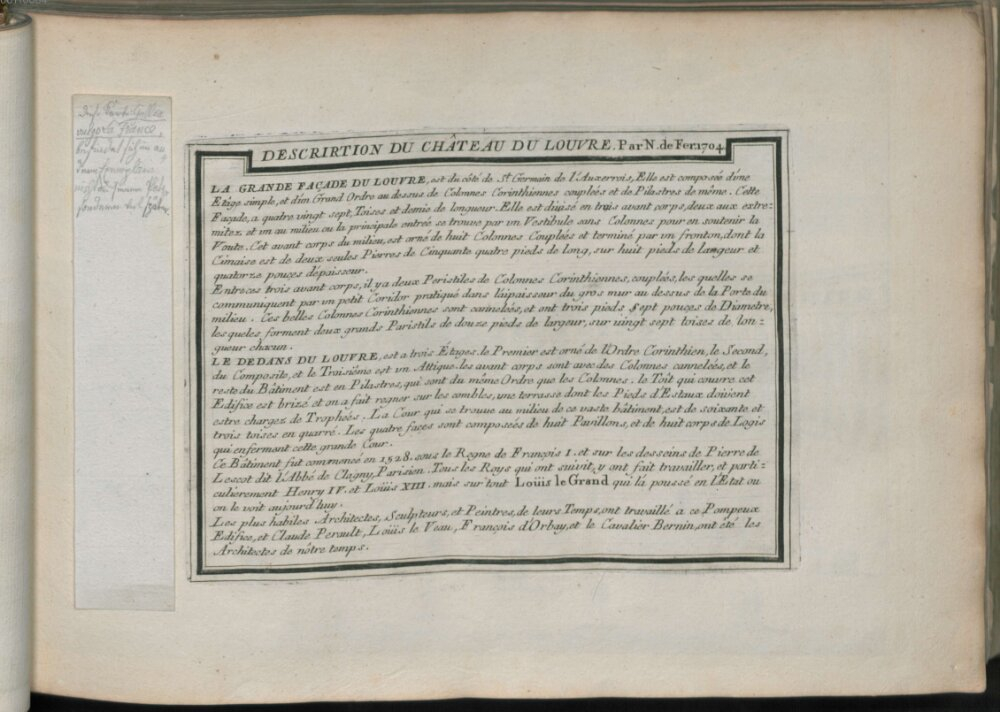 DESCRIRTION DU CHÂTEAU DU LOUVRE. Par N. de Fer. 1704.
LA GRANDE FAÇADE DU LOUVRE, est du côté de St. Germain de l'Auxerrois, Elle est composée d'une
Etage simple, et d'un Grand Ordre au dessus de Colonnes Corinthiennes couplées et de Pilastres de même. Cette
Façade, a quatre vingt sept, Toises et demie de longueur. Elle est divisé en trois avant corps, deux aux extre=
mitez et un au milieu ou la principale entrée se trouve par un Vestibule sans Colonnes pour en soutenir la
Voute. Cet avant corps du milieu, est orné de huit Colonnes Couplées et terminé par un fronton, dont la
Cimaise est de deux seules Pierres de Cinquante quatre pieds de long, sur huit pieds de largeur et
quatorze pouces dépaisseur.
Entre ces trois avant corps, il ya deux Peristiles de Colonnes Corinthiennes, couplées, les quelles se
communiquent par un petit Coridor pratiqué dans l'aipaisseur du gros mur au dessus de la Porte du
milieu. Ces belles Colonnes Corinthiennes sont canneleés, et ont trois pieds sept pouces de Diametre,
les queles, forment deux grands Paristils de douze pieds de largeur, sur vingt sept toises de lon=
gueur chacun.
LE DEDANS DU LOUVRE, est a trois Étages. le Premier est orné de l'Ordre Corinthien, le Second,
du Composite, et le Troisiême est un Attique. les avant corps sont avec des Colonnes canneleés, et le
reste du Bâtiment est en Pilastres, qui sont du même Ordre que les Colonnes. le Toit qui couvre cet
Edifice est brizé et on a fait regner sur les combles, une terrasse dont les Pieds d'Estaux doivent
estre chargez de Tropheés. La Cour qui se trouve au milieu de ce vaste bâtiment, est de soixante et
trois toises en quarré. Les quatre faces sont composées de huit Pavillons, et de huit corps de Logis
qui enferment cette grande Cour.
Ce Bâtiment fut commencé en 1528. sous le Regne de François I. et sur les desseins de Pierre de
Lescot dit l'Abbé de Clagny, Parisien. Tous les Roys qui ont suivit, y ont fait travailler, et parti=
culierement Henry IV. et Loüis XIII. mais sur tout Loüis le Grand qui l'a poussé en l'Etat ou
on le voit aujourd'huy.
Les plus habiles Architectes, Sculpteurs, et Peintres, de leurs Temps, ont travaillé a ce Pompeux
Edifice, et Claude Perault, Loüis le Veau, François d'Orbay, et le Cavalier Bernin, ont été les
Architectes de nôtre temps.